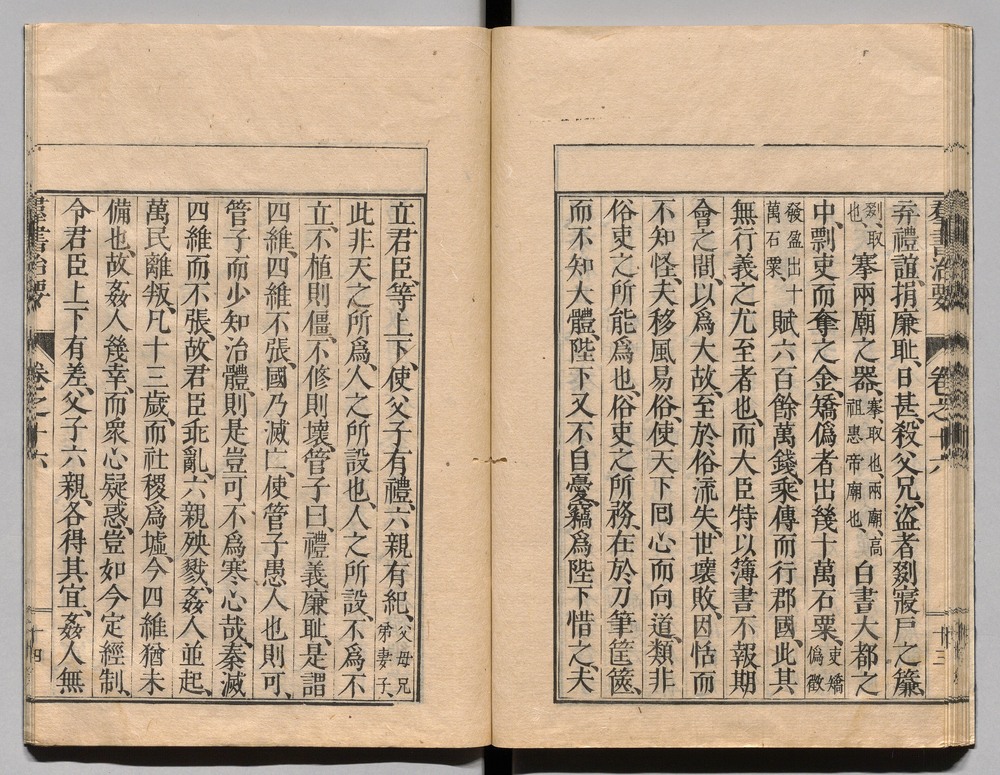 弃禮誼、捐廉耻、日甚殺父兄、盜者剟寢戶之簾、
剟、取也、搴兩廟之器、搴取也、兩廟、高祖惠帝廟也、白晝大都之
中、剽吏而奪之金、矯僞者出幾十萬石粟、吏矯僞徵
發盈出十萬石粟、賦六百餘萬錢、乘傳而行郡國、此其
無行義之尤至者也、而大臣特以簿書不報期
會之間、以爲大故、至於俗流失、世壞敗、因恬而
不知怪、夫移風易俗、使天下囘心而向道、類非
俗吏之所能爲也、俗吏之所務、在於刀筆筐篋、
而不知大體、陛下又不自憂、竊爲陛下惜之、夫
羣書治要 卷之十六 十三
立君臣、等上下、使父子有禮、六親有紀、父母兄弟妻子、
此非天之所爲、人之所設也、人之所設、不爲不
立、不植則僵、不修則壞、管子曰、禮義廉耻、是謂
四維、四維不張、國乃滅亡、使管子愚人也則可、
管子而少知治體、則是豈可不爲寒心哉、秦滅
四維而不張、故君臣乖亂、六親殃戮、姦人並起、
萬民離叛、凡十三歲、而社稷爲墟、今四維猶未
備也、故姦人幾幸、而衆心疑惑、豈如今定經制、
令君臣上下有差、父子六親、各得其宜、姦人無
羣書治要 卷之十六 十四